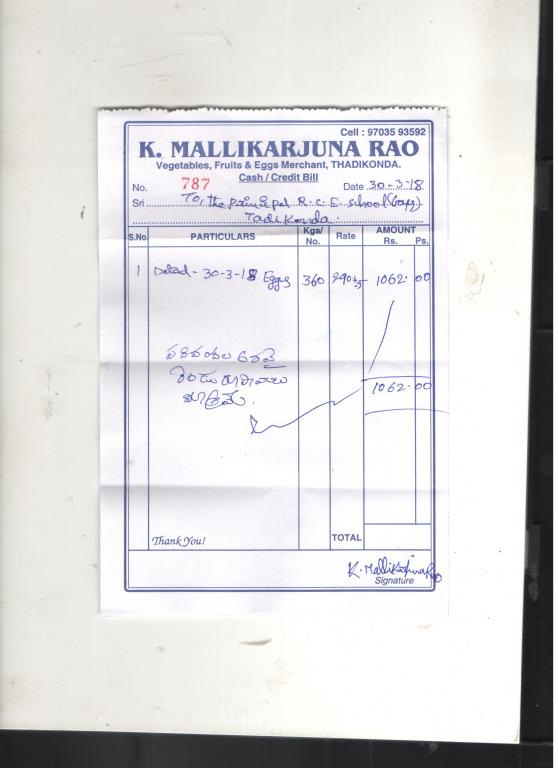 Cell : 97035 93592
K. MALLIKARJUNA RAO
Vegetables, Fruits & Eggs Merchant, THADIKONDA.
Cash / Credit Bill
No. 787 Date 30-3-18
Sri To, the principal R.C.E. school (Boys)
Tadikonda.
S.No. PARTICULARS Kgs/ No. Rate AMOUNT Rs. Ps.
1 Dated - 30-3-18 Eggs 360 1062.00
రెండు రూపాయలు
మాత్రమే.
1062.00
Thank You! TOTAL
K. Mallikarjuna Rao
Signature